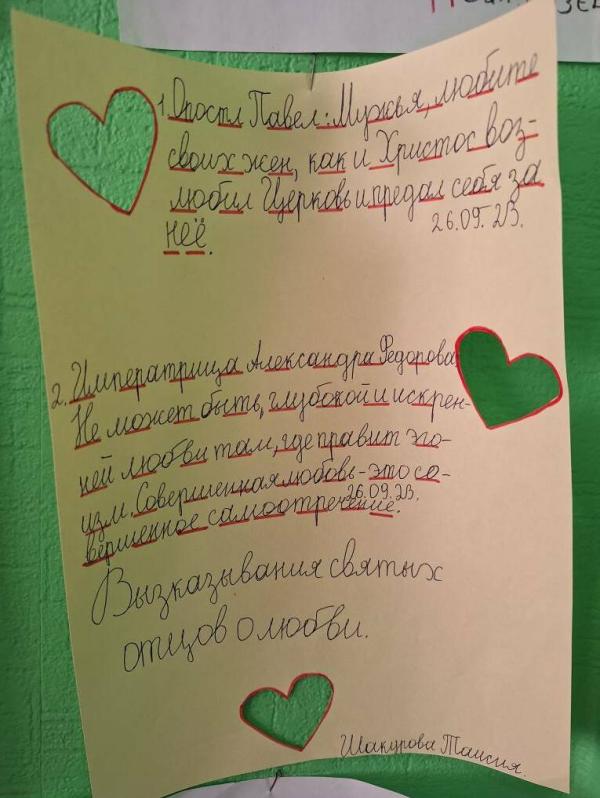 1. Опостл Павел: Мужья, любите
своих жен, как и Христос воз-
любил Церковь и предал себя за
неё.
26.09.23.
2. Императрица Александра Федорова.
Не может быть, глубокой и искрен-
ней любви там, где правит эго-
изм. Совершенная любовь - это со-
вершенное самоотречение.
26.09.23.
Вызказывания святых
отцов о любви.
Шакурова Таисия.